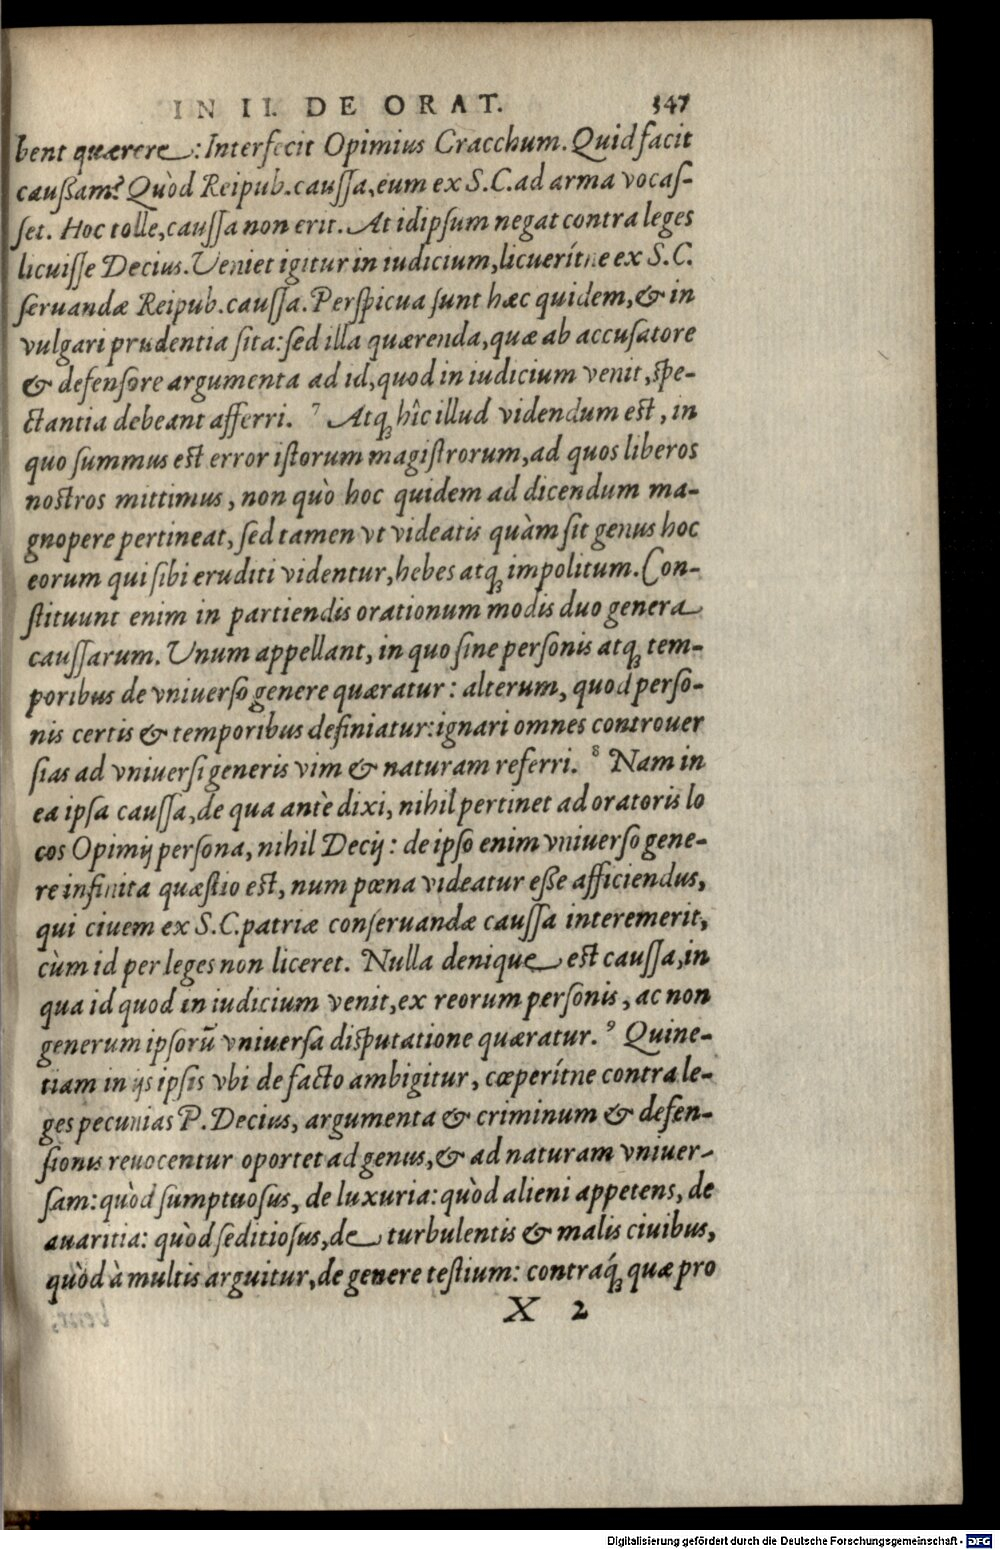 IN II. DE ORAT. 347
bent quærere: Interfecit Opimius Cracchum. Quid facit
caußam? Quòd Reipub. caussa, eum ex S.C. ad arma vocas-
set. Hoc tolle, caussa non erit. At idipsum negat contra leges
licuisse Decius. Veniet igitur in iudicium, licuerítne ex S.C.
seruandæ Reipub. caussa. Perspicua sunt hæc quidem, & in
vulgari prudentia sita: sed illa quærenda, quæ ab accusatore
& defensore argumenta ad id, quod in iudicium venit, spe-
ctantia debeant afferri. 7 Atq; hîc illud videndum est, in
quo summus est error istorum magistrorum, ad quos liberos
nostros mittimus, non quò hoc quidem ad dicendum ma-
gnopere pertineat, sed tamen vt videatis quàm sit genus hoc
eorum qui sibi eruditi videntur, hebes atq; impolitum. Con-
stituunt enim in partiendis orationum modis duo genera
caussarum. Unum appellant, in quo sine personis atq; tem-
poribus de vniuerso genere quæratur: alterum, quod perso-
nis certis & temporibus definiatur: ignari omnes controuer
sias ad vniuersi generis vim & naturam referri. 8 Nam in
ea ipsa caussa, de qua antè dixi, nihil pertinet ad oratoris lo
cos Opimij persona, nihil Decij: de ipso enim vniuerso gene-
re infinita quæstio est, num pœna videatur eße afficiendus,
qui ciuem ex S.C. patriæ conseruandæ caussa interemerit,
cùm id per leges non liceret. Nulla denique est caussa, in
qua id quod in iudicium venit, ex reorum personis, ac non
generum ipsorū vniuersa disputatione quæratur. 9 Quine-
tiam in ijs ipsis vbi de facto ambigitur, cœperítne contra le-
ges pecunias P. Decius, argumenta & criminum & defen-
sionis reuocentur oportet ad genus, & ad naturam vniuer-
sam: quòd sumptuosus, de luxuria: quòd alieni appetens, de
auaritia: quòd seditiosus, de turbulentis & malis ciuibus,
quòd à multis arguitur, de genere testium: contráq; quæ pro
X 2
Digitalisierung gefördert durch die Deutsche Forschungsgemeinschaft - DFG